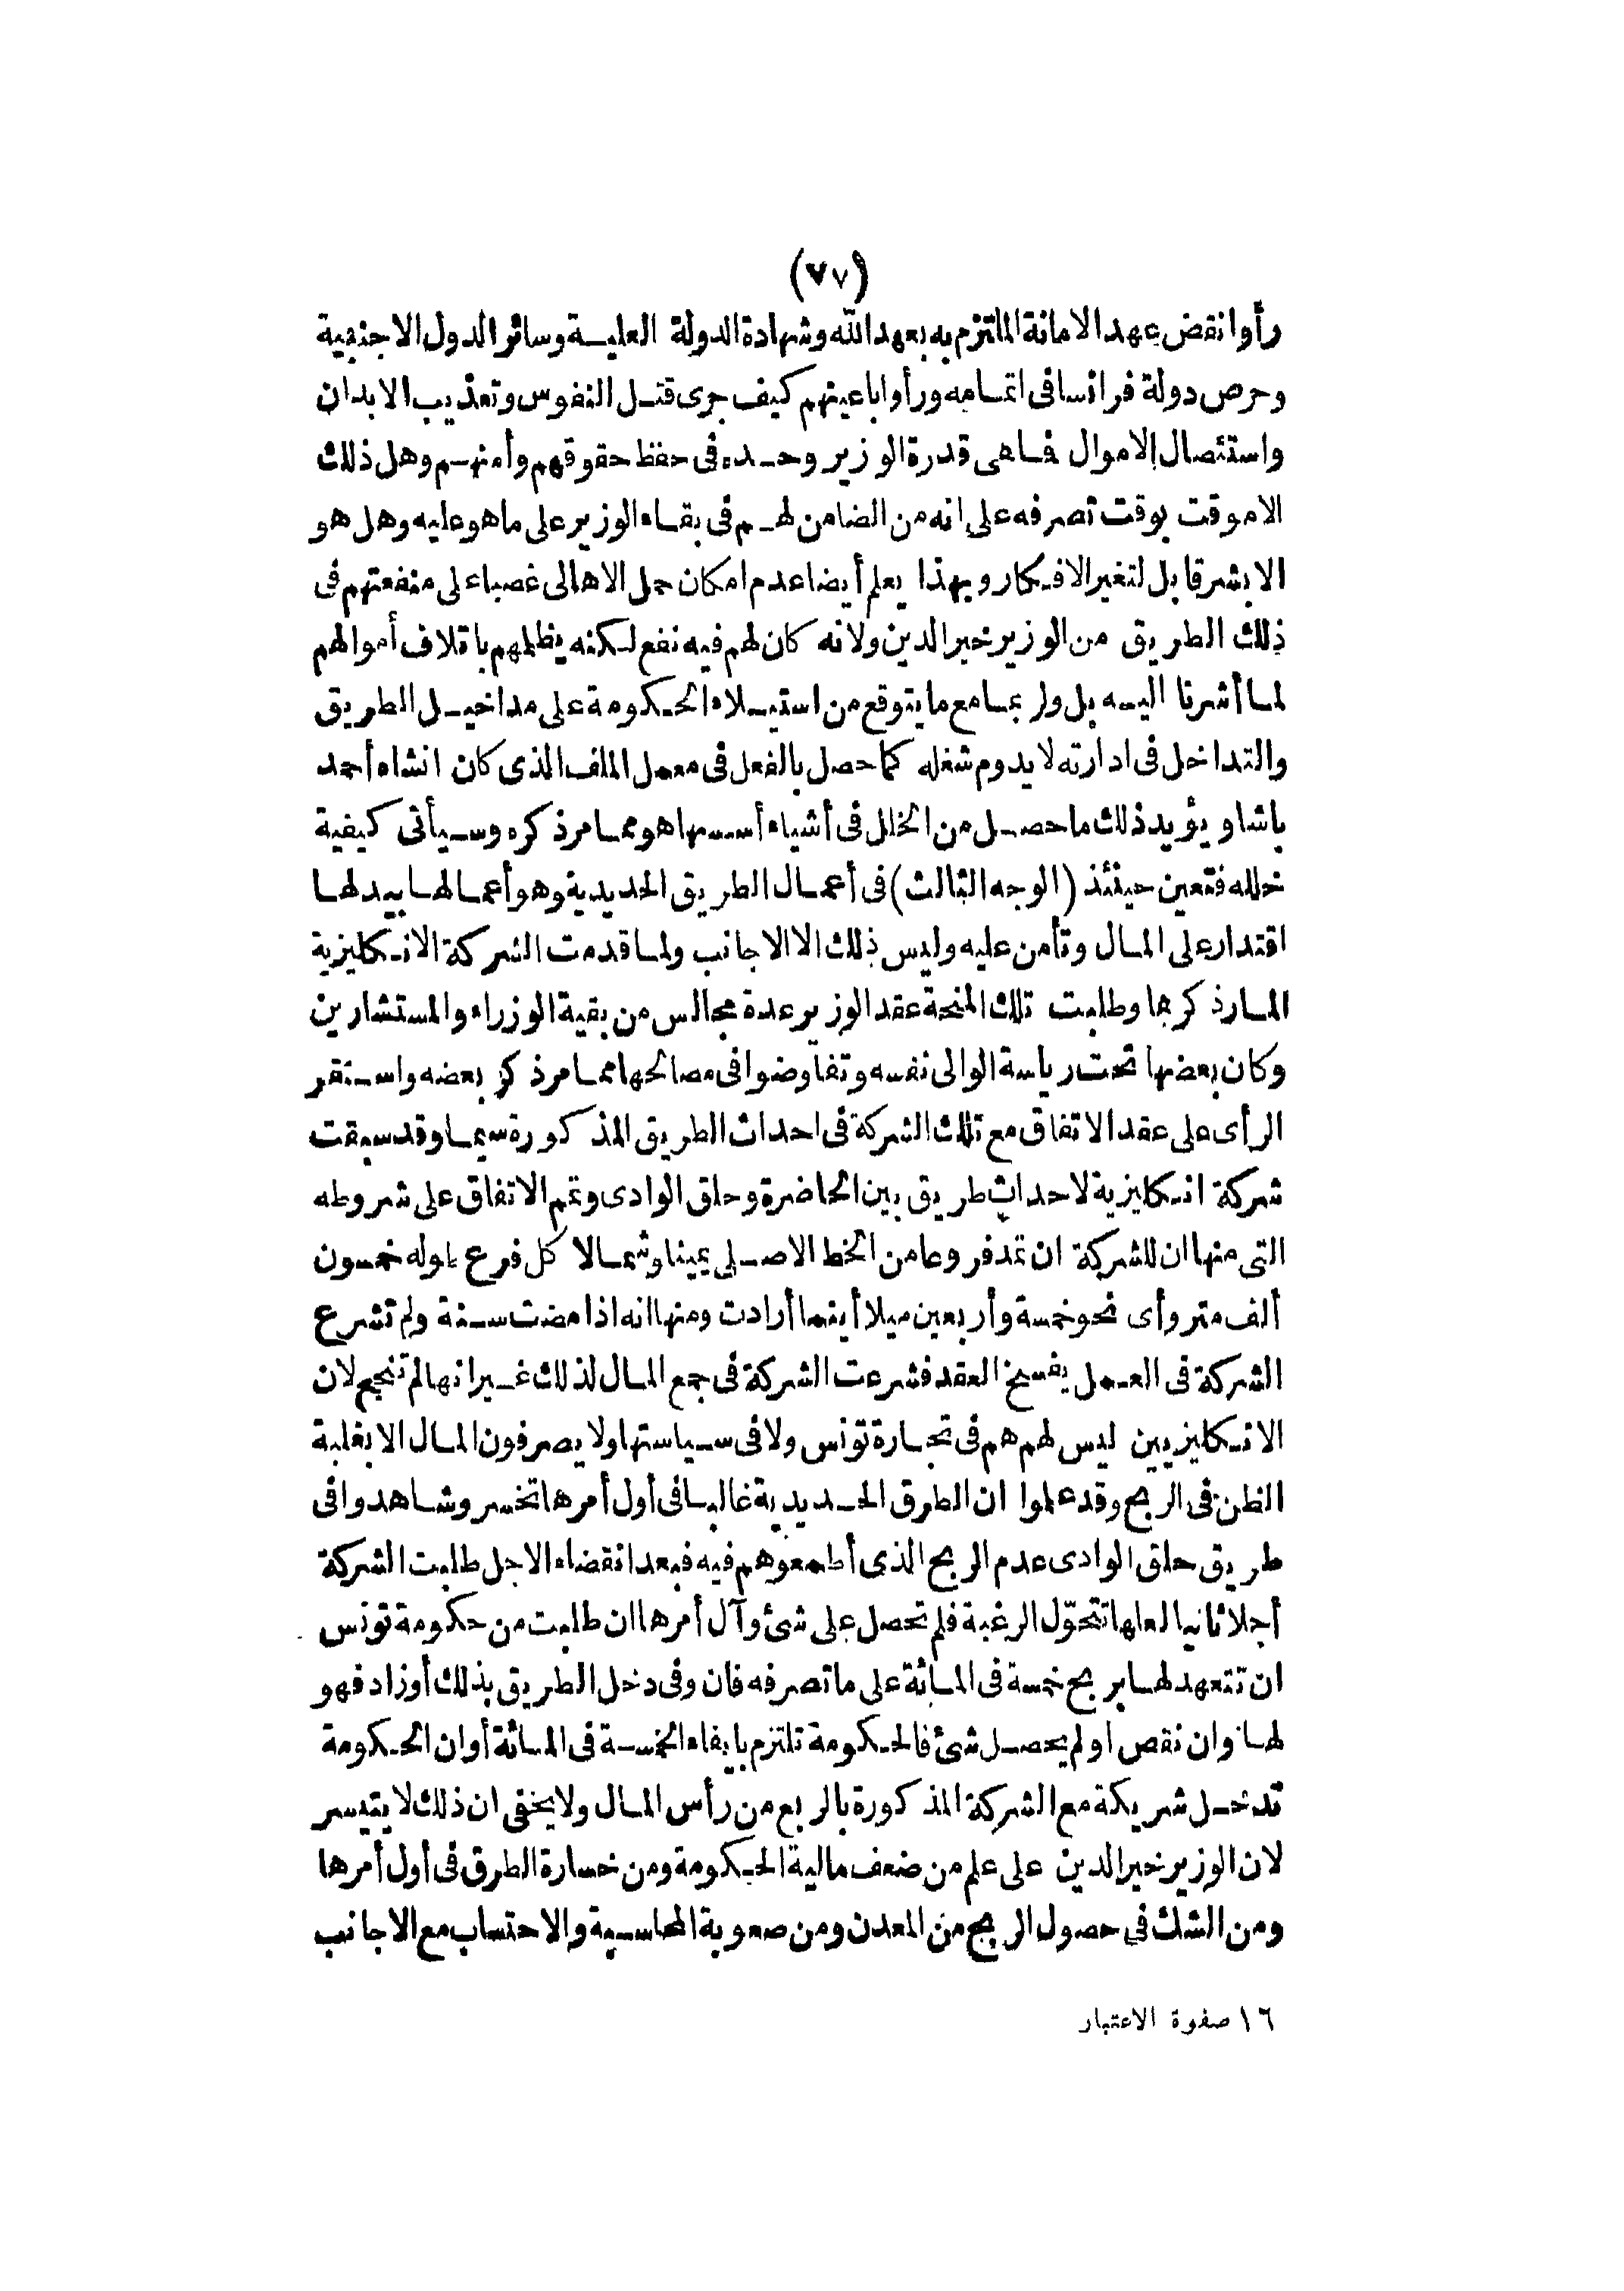 (٧٧)
رأوا نقض عهد الامانة الملتزم به بعهد الله وشهادة الدولة العلية وسائر الدول الاجنبية
وحرص دولة فرانسا فى اتمامه ورأوا باعينهم كيف جرى قتل النفوس وتعذيب الابدان
واستئصال الاموال فما هى قدرة الوزير وحده فى حفظ حقوقهم وأمنهم وهل ذلك
الا موقت بوقت تصرفه على انه من الضامن لهم فى بقاء الوزير على ما هو عليه وهل هو
الا بشر قابل لتغير الافكار وبهذا يعلم أيضا عدم امكان حمل الاهالى غصبا على منفعتهم فى
ذلك الطريق من الوزير خير الدين ولانه كان لهم فيه نفع لكنه يظلمهم باتلاف أموالهم
لما أشرنا اليه بل ولربما مع ما يتوقع من استيلاء الحكومة على مداخيل الطريق
والتداخل فى ادارته لا يدوم شغله كما حصل بالفعل فى معمل الملف الذى كان انشاه أحمد
باشا ويؤيد ذلك ما حصل من الخلل فى أشياء أسسها هو مما مر ذكره وسيأتى كيفية
خلله فتعين حينئذ (الوجه الثالث) فى أعمال الطريق الحديدية وهو أعمالها بيد لها
اقتدار على المال وتأمن عليه وليس ذلك الا الاجانب ولما قدمت الشركة الانكليزية
المار ذكرها وطلبت تلك المنحة عقد الوزير عدة مجالس من بقية الوزراء والمستشارين
وكان بعضها تحت رياسة الوالى نفسه وتفاوضوا فى مصالحها مما مر ذكر بعضه واستقر
الرأى على عقد الاتفاق مع تلك الشركة فى احداث الطريق المذكورة سيما وقد سبقت
شركة انكليزية لاحداث طريق بين الحاضرة وحلق الوادى وتم الاتفاق على شروطه
التى منها ان للشركة ان تمد فروعا من الخط الاصلى يمينا وشمالا كل فرع طوله خمسون
ألف مترو أى نحو خمسة وأربعين ميلا أينما أرادت ومنها انه اذا مضت سنة ولم تشرع
الشركة فى العمل يفسخ العقد فشرعت الشركة فى جمع المال لذلك غير انها لم تنجح لان
الانكليزيين ليس لهم هم فى تجارة تونس ولا فى سياستها ولا يصرفون المال الا بغلبة
الظن فى الربح وقد علموا ان الطرق الحديدية غالبا فى أول أمرها تخسر وشاهدوا فى
طريق حلق الوادى عدم الربح الذى أطمعوهم فيه فبعد انقضاء الاجل طلبت الشركة
أجلا ثانيا لعلها تتحوّل الرغبة فلم تحصل على شئ وآل أمرها ان طلبت من حكومة تونس
ان تتعهد لها بربح خمسة فى المائة على ما تصرفه فان وفى دخل الطريق بذلك أو زاد فهو
لها وان نقص او لم يحصل شئ فالحكومة تلتزم بايفاء الخمسة فى المائة أو ان الحكومة
تدخل شريكة مع الشركة المذكورة بالربع من رأس المال ولا يخفى ان ذلك لا يتيسر
لان الوزير خير الدين على علم من ضعف مالية الحكومة ومن خسارة الطرق فى أول أمرها
ومن الشك فى حصول الربح من المعدن ومن صعوبة المحاسبة والاحتساب مع الاجانب
١٦ صفوة الاعتبار